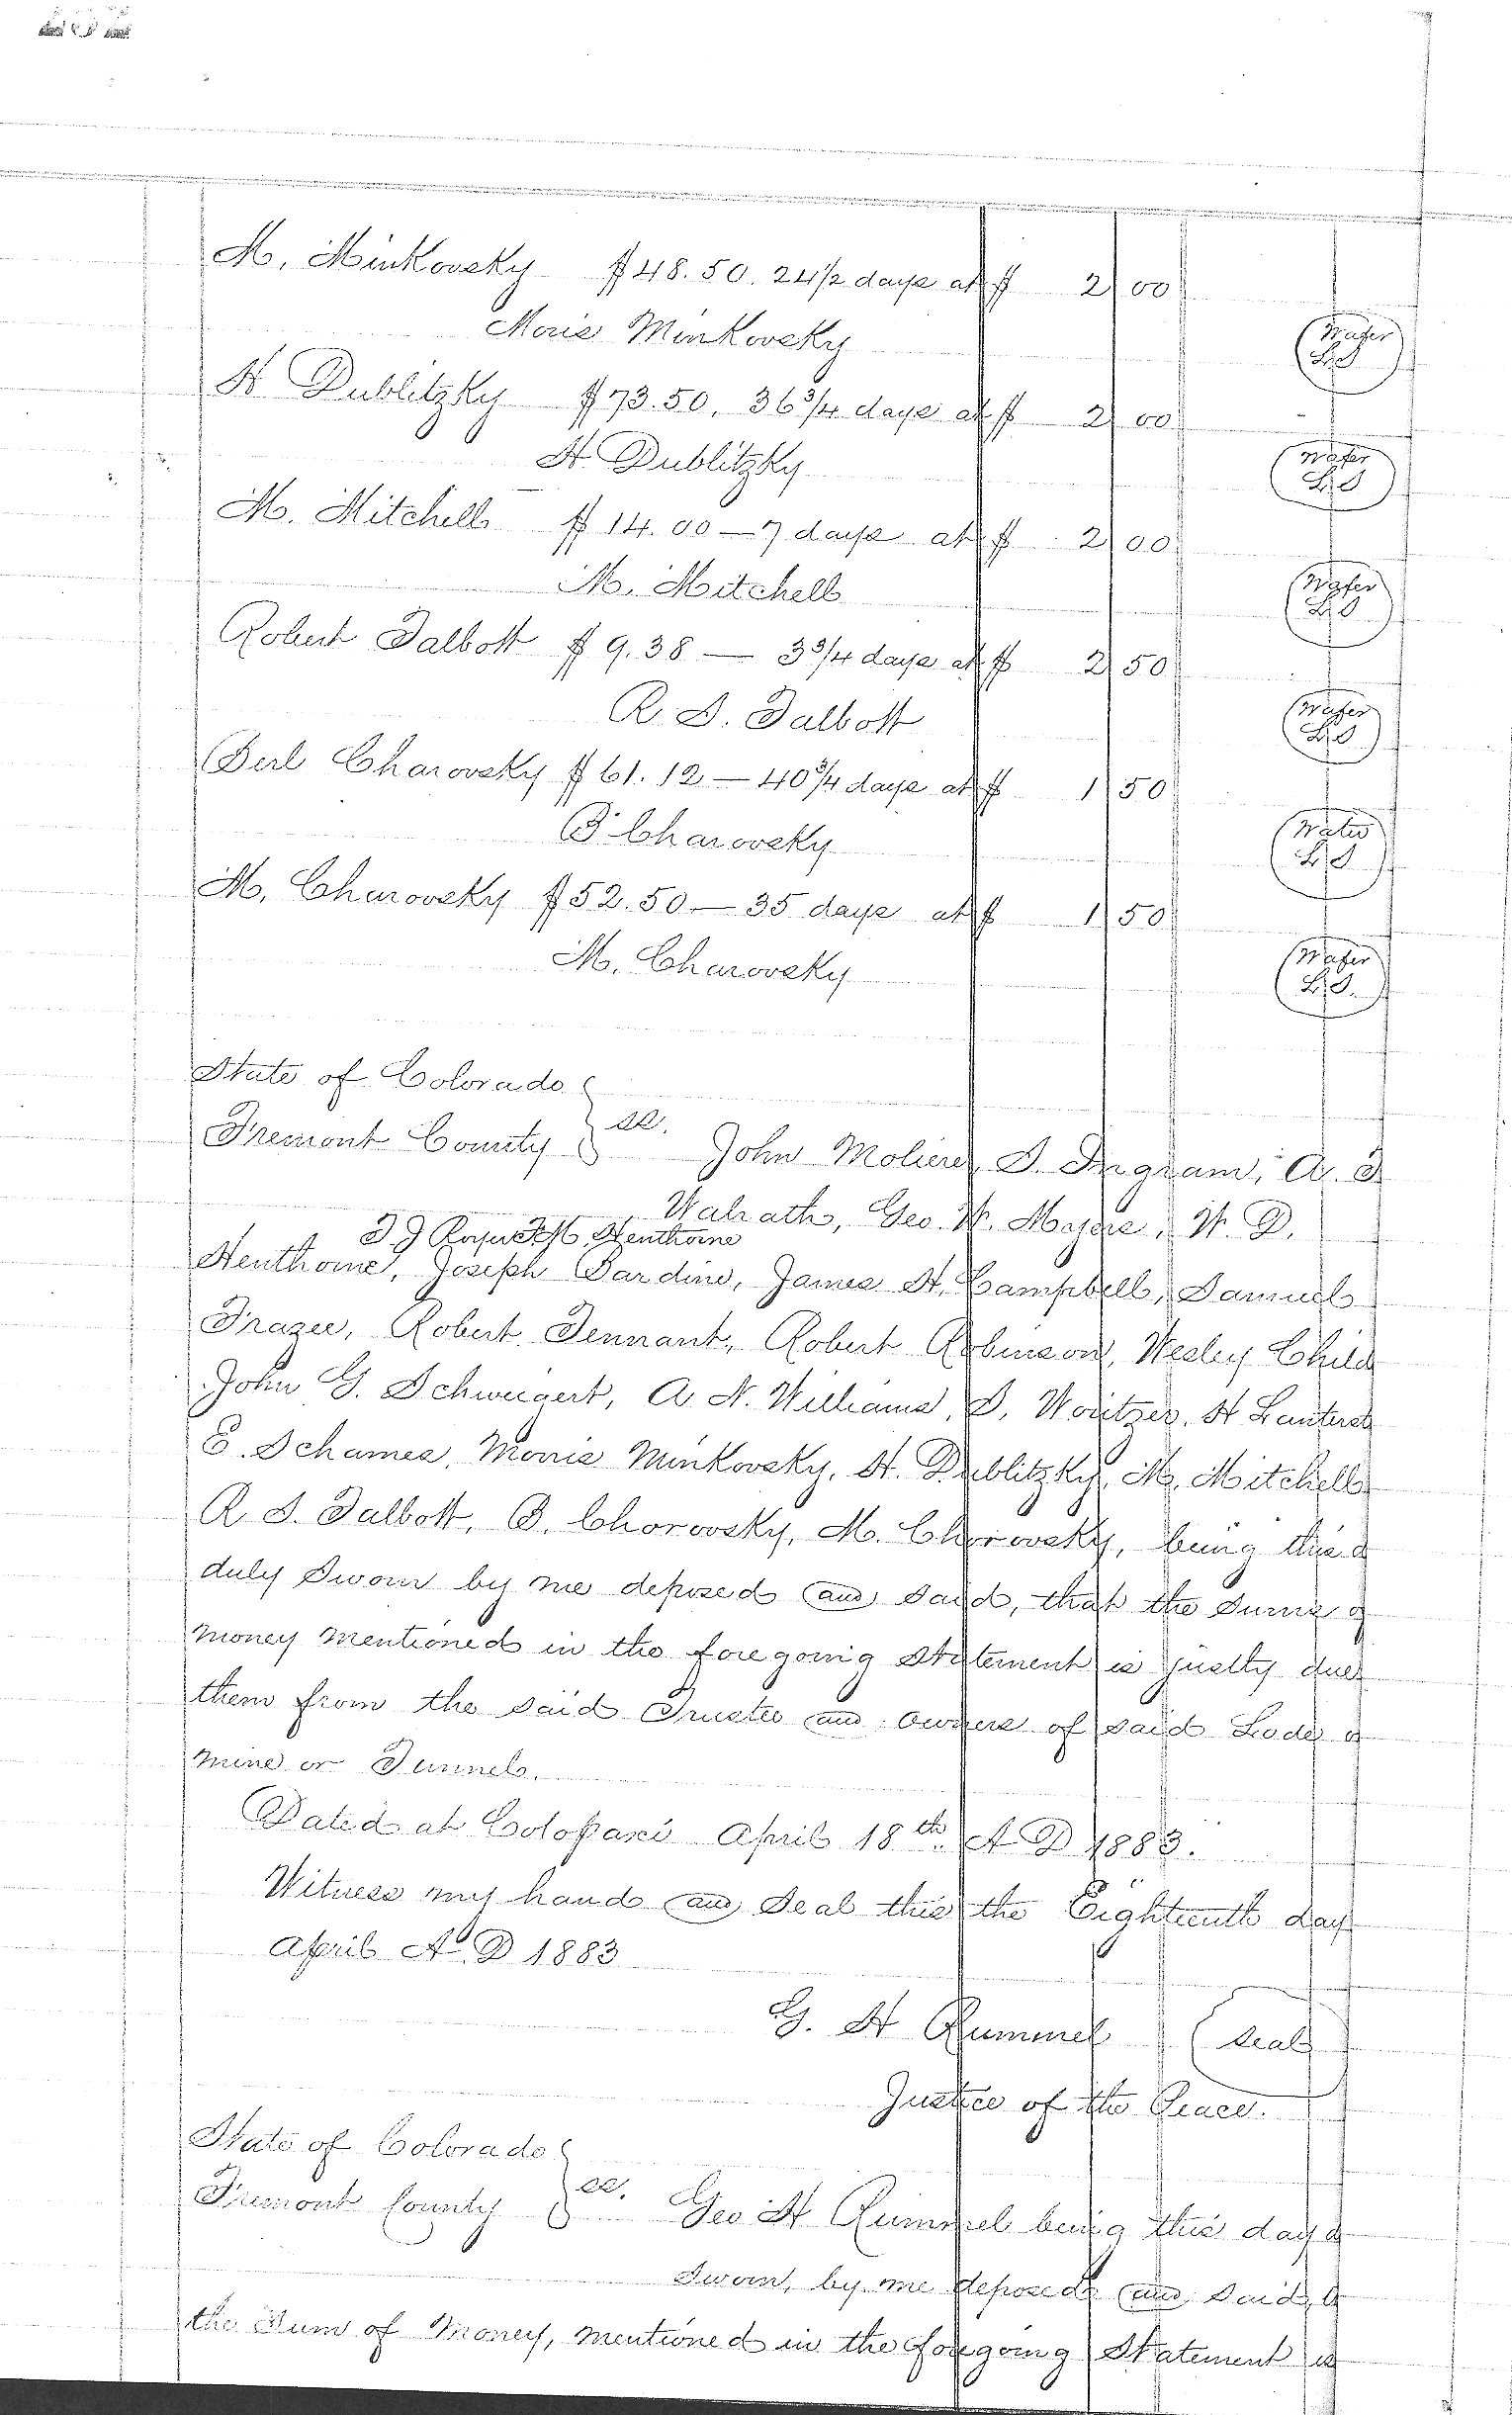 M. Minkovsky $48.50. 24 1/2 days at $ 2 00
Moris Minkovsky Wafer L S
H Dublitzky $73.50. 36 3/4 days at $ 2 00
H. Dublitzky Wafer L S
M. Mitchell $14.00 — 7 days at $ 2 00
M. Mitchell Wafer L S
Robert Talbott $9.38 — 3 3/4 days at $ 2 50
R. S. Talbott Wafer L S
Berl Charovsky $61.12 — 40 3/4 days at $ 1 50
B Charovsky Wafer L S
M. Charovsky $52.50 — 35 days at $ 1 50
M. Charovsky Wafer L S.
State of Colorado
Fremont County } ss. John Moliere S. Ingram, A. S
Walrath, Geo. W. Myers, W. D.
T J H. Henthorne
Henthorne, Joseph Pardine, James H. Campbell, Samuel
Frazee, Robert Tennant, Robert Robinson, Wesley Child
John G. Schweigert, A. N. Williams, S. Woritzer, H
E. Schames, Morris Minkovsky, H. Dublitzky, M. Mitchell
R S. Talbott, B. Chorovsky, M. Chorovsky, being this d
duly Sworn by me deposed and said, that the Sums o
money mentioned in the foregoing statement is justly due
them from the said Trustee and owners of said Lode o
mine or Tunnel.
Dated at Cotopaxi April 18th A D 1883.
Witness my hand and Seal this the Eighteenth day
April A. D 1883
G. H Rummel Seal
Justice of the Peace.
State of Colorado
Fremont County } ss. Geo H Rummel being this day d
Sworn, by me deposed and said,
the Sum of Money, mentioned in the foregoing Statement is